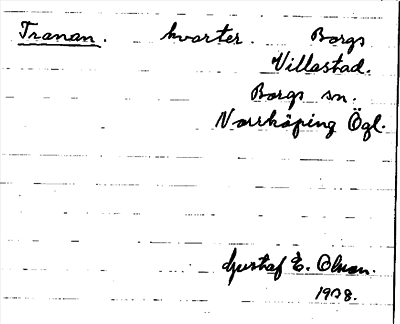 Tranan. kvarter. Borgs
Villastad.
Borgs sn.
Norrköping Ögl.
Gustaf E. Olson.
1928.